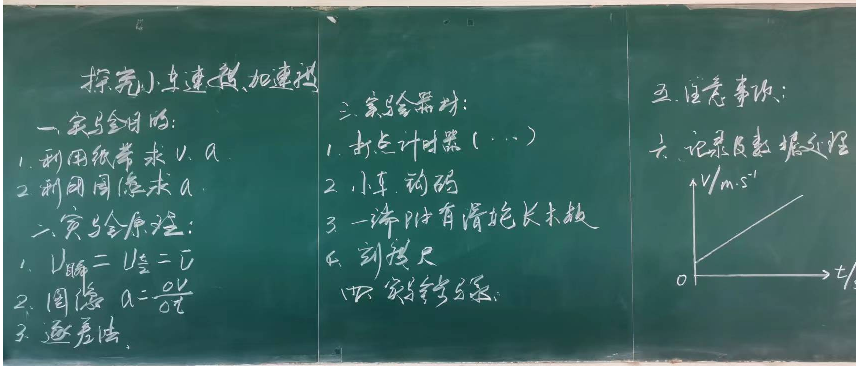 探究小车速度、加速度
一、实验目的:
1. 利用纸带求 v. a.
2. 利用图像求 a.
二、实验原理:
1. U瞬时 = U t/2 = ū
2. 图像 a = ΔV/Δt
3. 逐差法.
三、实验器材:
1. 打点计时器 (···)
2. 小车. 钩码
3. 一端附有滑轮长木板
4. 刻度尺
四、实验步骤:
五、注意事项:
六、记录及数据处理
V/m·s⁻¹
0
t/s